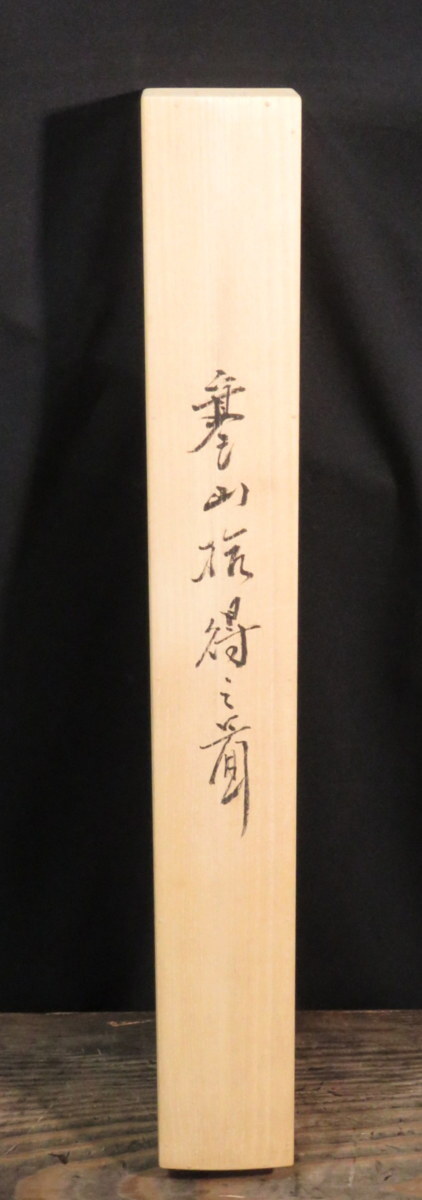 寒山拾得之圖